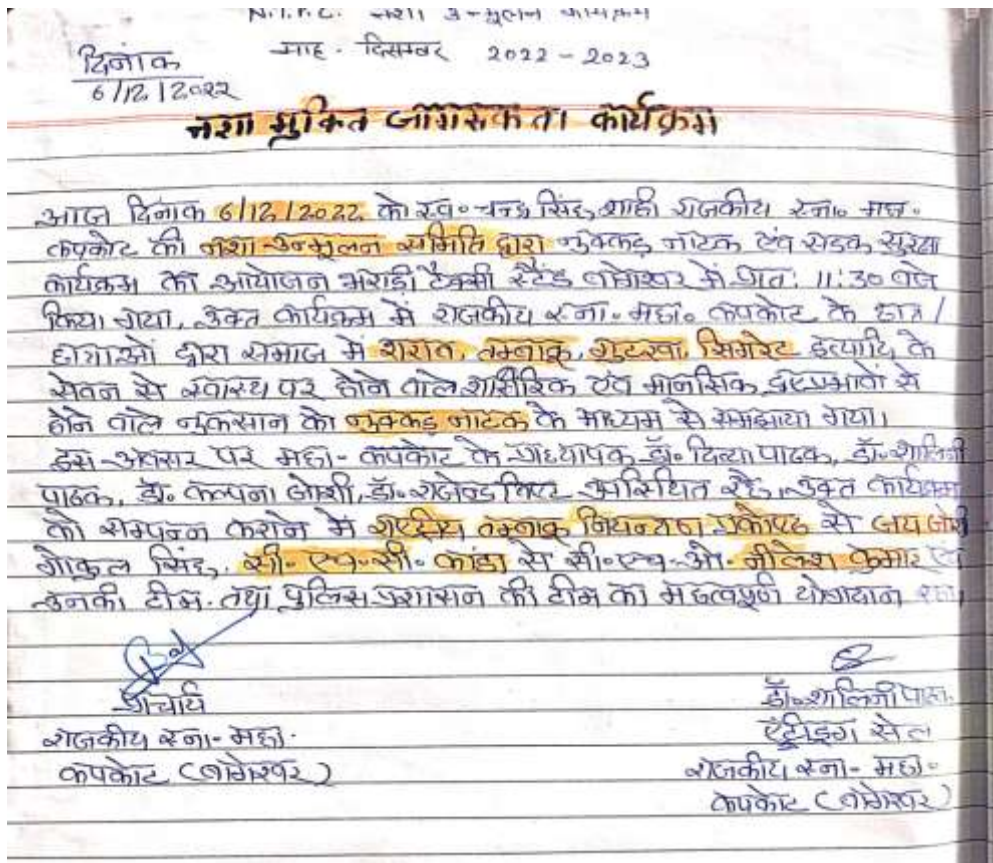 नशा उन्मूलन कार्यक्रम
माह - दिसम्बर 2022 - 2023
दिनांक
6/12/2022
नशा मुक्ति जागरूकता कार्यक्रम
आज दिनांक 6/12/2022 को स्व॰ चन्द्र सिंह शाही राजकीय स्ना॰ महा॰
कपकोट की नशा-उन्मूलन समिति द्वारा नुक्कड़ नाटक एंव सड़क सुरक्षा
कार्यक्रम का आयोजन भराड़ी टैक्सी स्टैंड बागेश्वर में प्रात: 11:30 बजे
किया गया, उक्त कार्यक्रम में राजकीय स्ना॰ महा॰ कपकोट के छात्र /
छात्राओं द्वारा समाज में शराब, तम्बाकू, गुटखा, सिगरेट इत्यादि के
सेवन से स्वास्थ पर होने वाले शारीरिक एंव मानसिक दुष्प्रभावों से
होने वाले नुकसान को नुक्कड़ नाटक के माध्यम से समझाया गया।
इस अवसर पर महा- कपकोट के प्राध्यापक डॉ॰ दिव्या पाठक, डॉ॰ शालिनी
पाठक, डॉ॰ कल्पना जोशी, डॉ॰ राजेन्द्र उपस्थित रहे, उक्त कार्यक्रम
को सम्पन्न कराने में राष्ट्रीय तम्बाकू नियन्त्रण प्रकोष्ठ से जय जोशी
गोकुल सिंह, सी॰ एच॰ सी॰ कांडा से सी॰ एच॰ ओ॰ नीलेश कुमार एंव
उनकी टीम तथा पुलिस प्रशासन की टीम का महत्वपूर्ण योगदान रहा।
प्राचार्य
राजकीय स्ना- महा-
कपकोट (बागेश्वर)
डॉ॰ शालिनी पाठक
सेल
राजकीय स्ना- महा-
कपकोट (बागेश्वर)